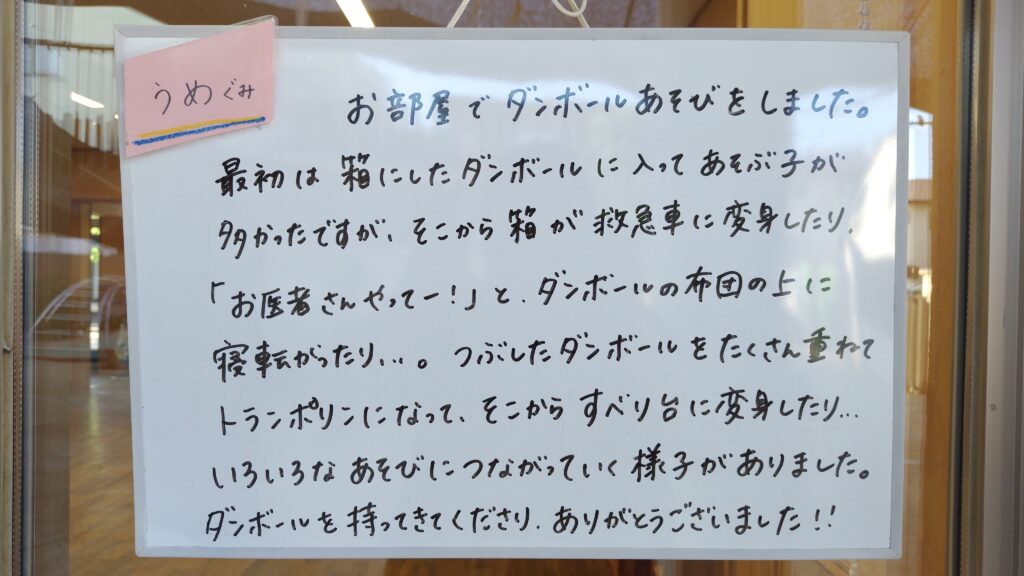 うめぐみ
お部屋でダンボールあそびをしました。
最初は箱にしたダンボールに入ってあそぶ子が
多かったですが、そこから箱が救急車に変身したり、
「お医者さんやってー!」と、ダンボールの布団の上に
寝転がったり…。つぶしたダンボールをたくさん重ねて
トランポリンになって、そこからすべり台に変身したり…
いろいろなあそびにつながっていく様子がありました。
ダンボールを持ってきてくださり、ありがとうございました!!